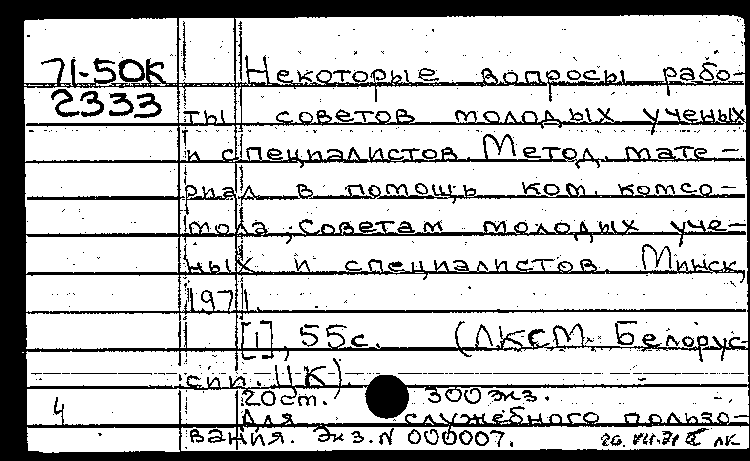 71-5ОК Некоторые вопросы рабо-
2333 ты советов молодых ученых
и специалистов. Метод. мате-
риал в помощь ком. комсо-
мола, советам молодых уче-
ных и специалистов. Минск,
1971.
[1], 55с. (ЛКСМ Белорус-
сии. ЦК)
20см. 300 экз.
4 Для служебного пользо-
вания. Экз. N 000007. 20.VII.71